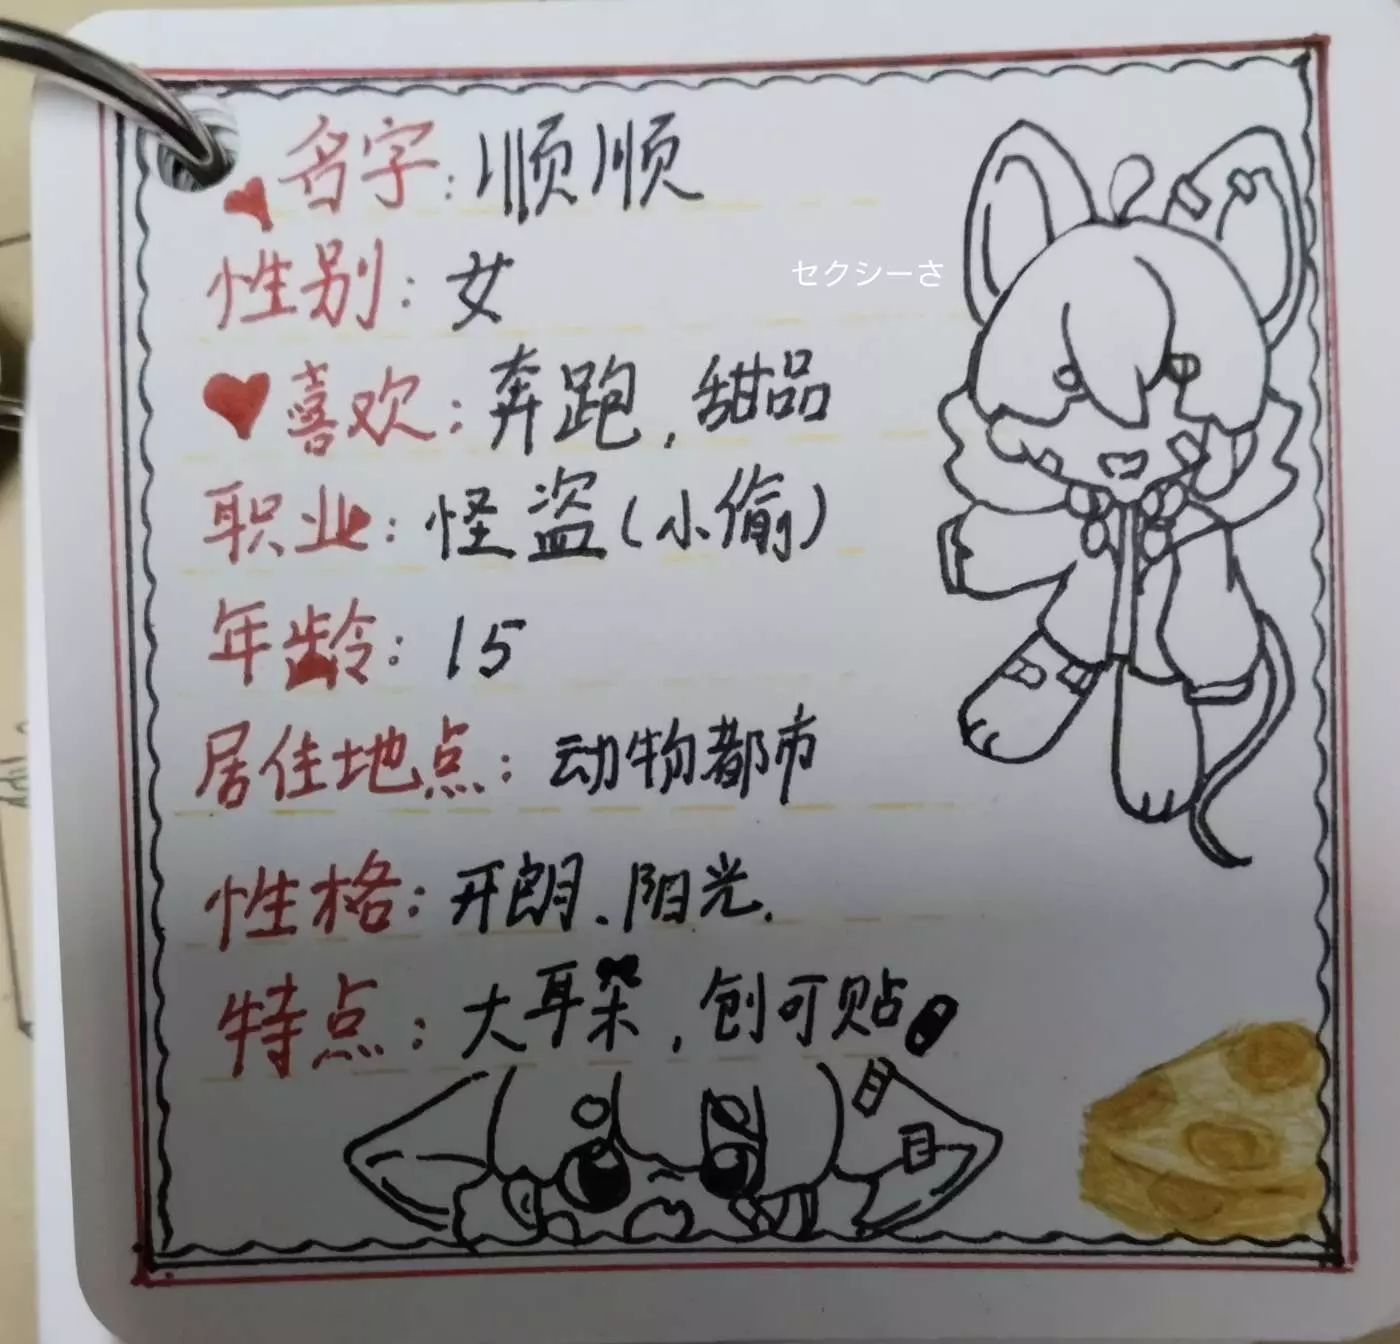 名字:顺顺
性别:女
セクシーさ
喜欢:奔跑,甜品
职业:怪盗(小偷)
年龄:15
居住地点:动物都市
性格:开朗、阳光.
特点:大耳朵,创可贴